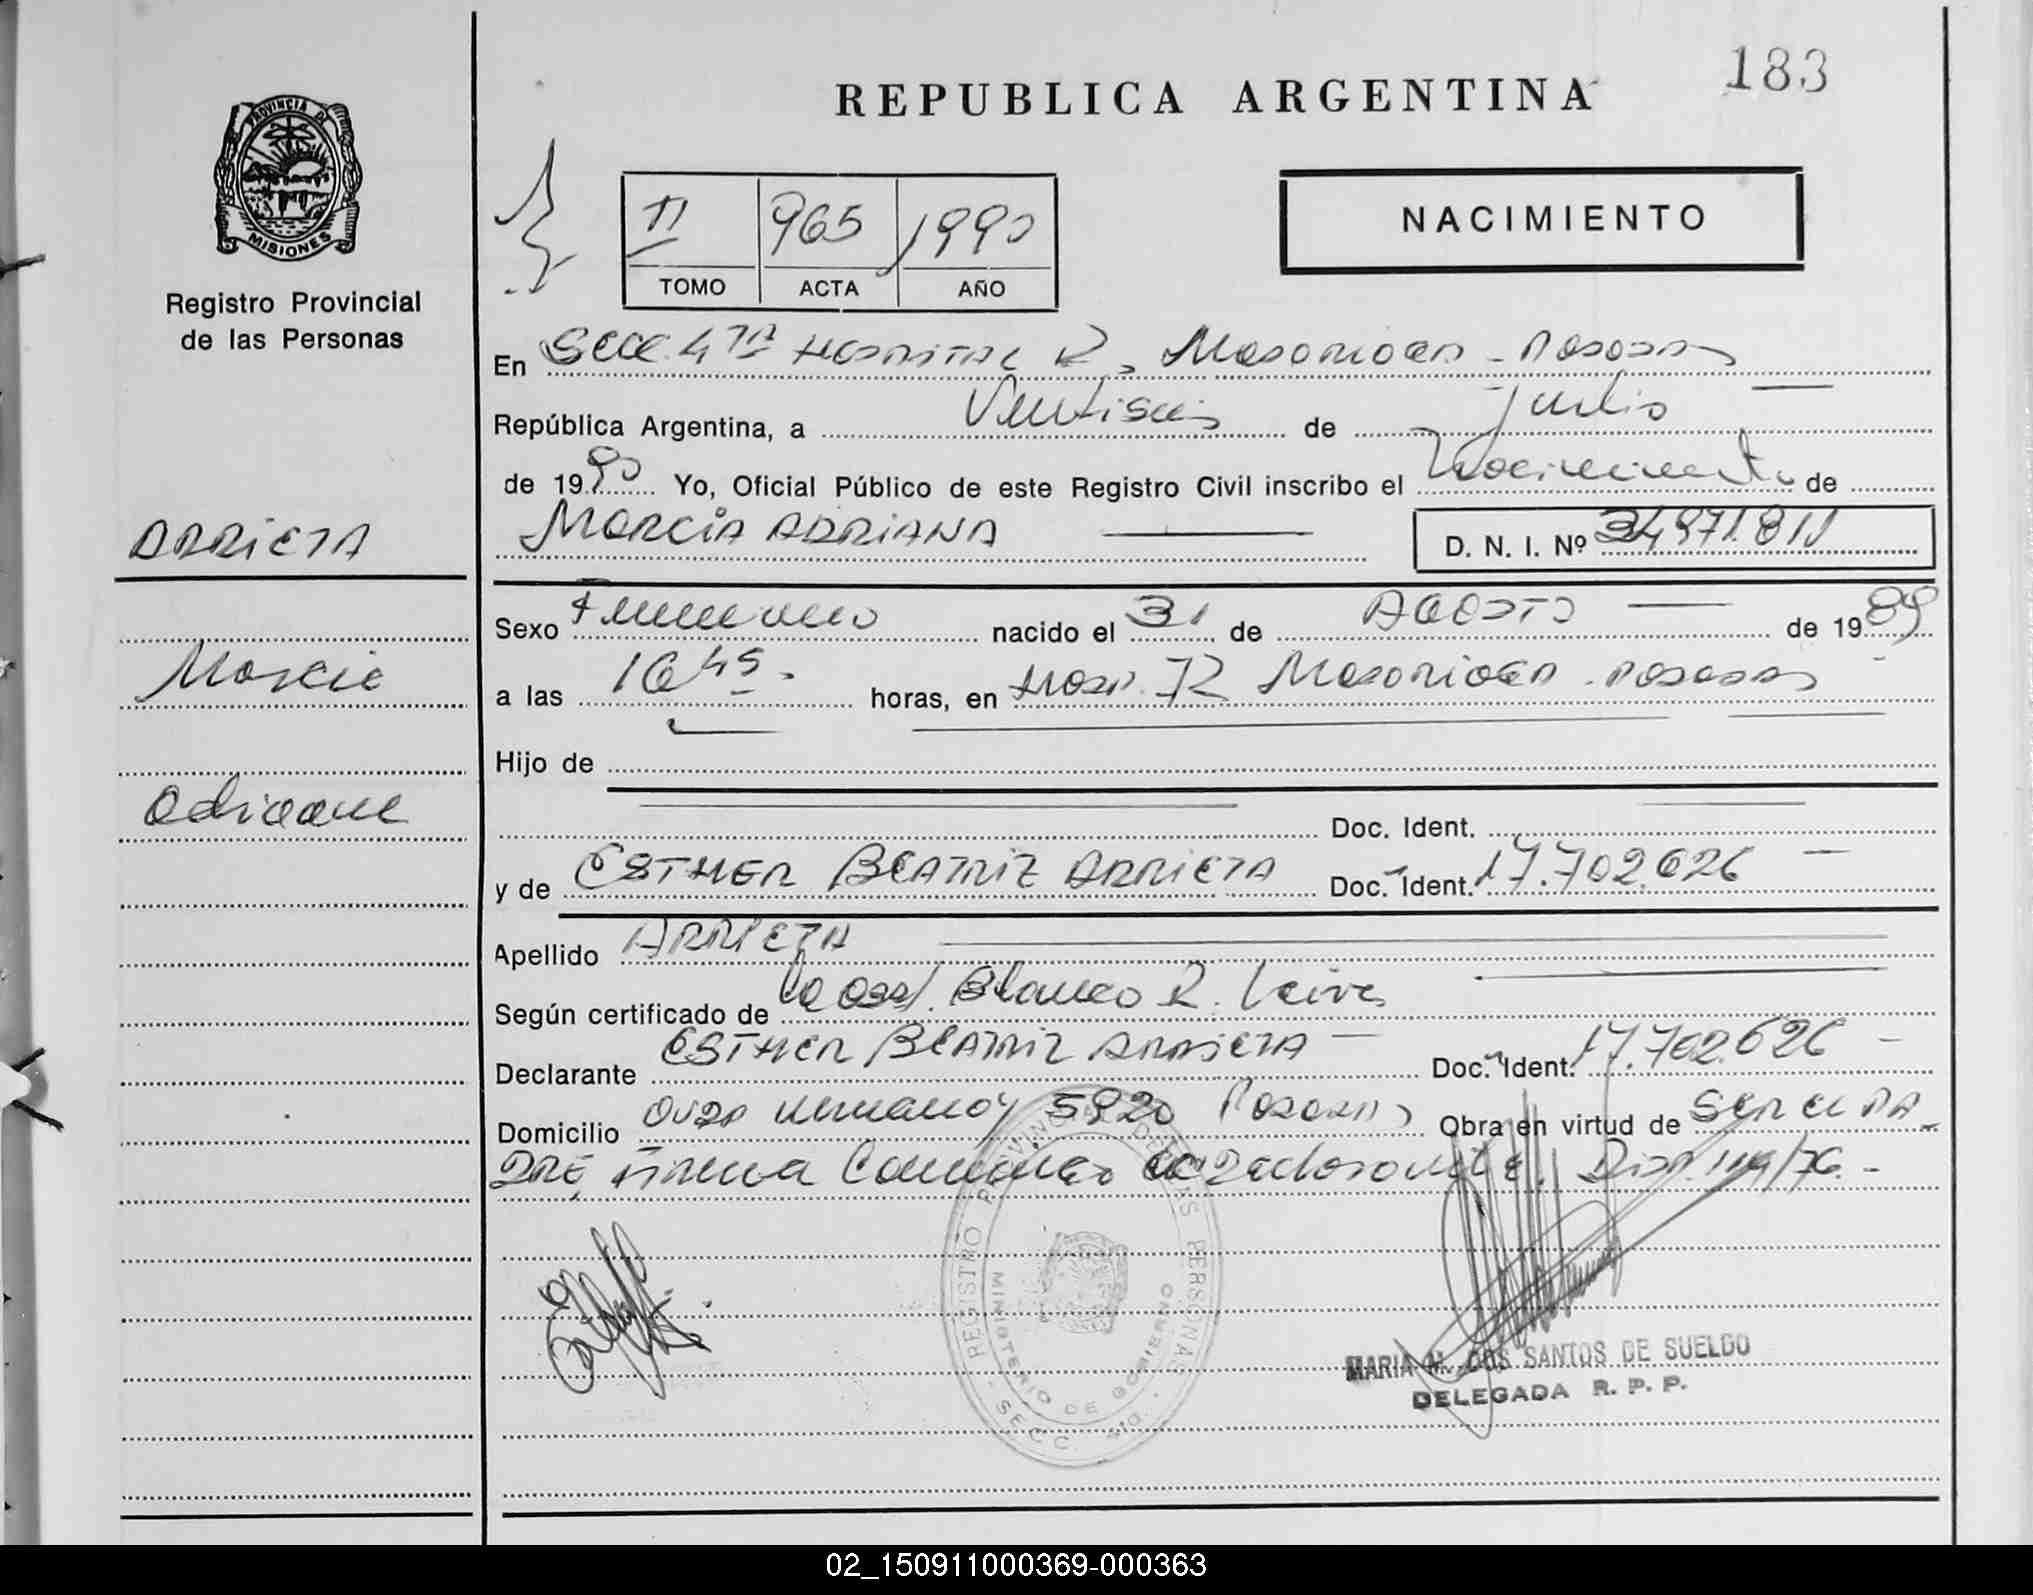 183
REPUBLICA ARGENTINA
PROVINCIA DE
MISIONES
Registro Provincial
de las Personas
II 965 1990
TOMO ACTA AÑO
NACIMIENTO
En Secc. 4TA Hospital R. Madariaga - Posadas
República Argentina, a Veintiseis de Julio
de 1990 Yo, Oficial Público de este Registro Civil inscribo el Nacimiento de
MARCIA ADRIANA D. N. I. Nº 34971.811
ARRIETA
Sexo Femenino nacido el 31 de AGOSTO de 1989
Marcia
a las 16 45 horas, en Hosp. R Madariaga - Posadas
Hijo de
Adriana
Doc. Ident.
y de ESTHER BEATRIZ ARRIETA Doc. Ident. 17.702.626
Apellido ARRIETA
Según certificado de la Obst. Blanca R. Leiva
Declarante ESTHER BEATRIZ ARRIETA Doc. Ident. 17.702.626
Domicilio 5920 Posadas Obra en virtud de SER EL PA-
DRE, Firma Conmigo la Declarante. Disp. 114/76.-
REGISTRO PROVINCIAL DE LAS PERSONAS
MINISTERIO DE GOBIERNO
SECC. 4TA.
MARIA M. DOS SANTOS DE SUELDO
DELEGADA R. P. P.
02_150911000369-000363